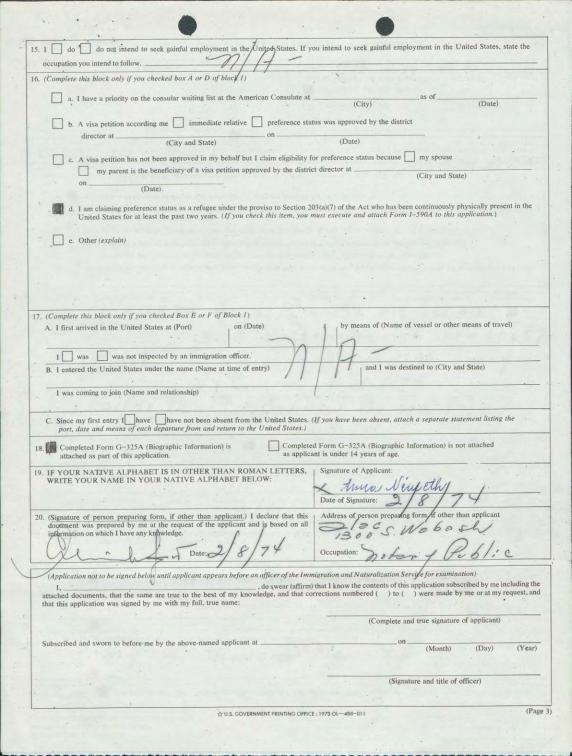 15. I do do not intend to seek gainful employment in the United States. If you intend to seek gainful employment in the United States, state the
occupation you intend to follow. N/A -
16. (Complete this block only if you checked box A or D of block 1)
a. I have a priority on the consular waiting list at the American Consulate at as of
(City) (Date)
b. A visa petition according me immediate relative preference status was approved by the district
director at on
(City and State) (Date)
c. A visa petition has not been approved in my behalf but I claim eligibility for preference status because my spouse
my parent is the beneficiary of a visa petition approved by the district director at
(City and State)
on
(Date).
d. I am claiming preference status as a refugee under the proviso to Section 203(a)(7) of the Act who has been continuously physically present in the
United States for at least the past two years. (If you check this item, you must execute and attach Form I-590A to this application.)
e. Other (explain)
17. (Complete this block only if you checked Box E or F of Block 1)
A. I first arrived in the United States at (Port) on (Date) by means of (Name of vessel or other means of travel)
N/A -
I was was not inspected by an immigration officer.
B. I entered the United States under the name (Name at time of entry) and I was destined to (City and State)
I was coming to join (Name and relationship)
C. Since my first entry I have have not been absent from the United States. (If you have been absent, attach a separate statement listing the
port, date and means of each departure from and return to the United States.)
18. Completed Form G-325A (Biographic Information) is Completed Form G-325A (Biographic Information) is not attached
attached as part of this application. as applicant is under 14 years of age.
19. IF YOUR NATIVE ALPHABET IS IN OTHER THAN ROMAN LETTERS, Signature of Applicant:
WRITE YOUR NAME IN YOUR NATIVE ALPHABET BELOW:
x
Date of Signature: 2/8/74
20. (Signature of person preparing form, if other than applicant.) I declare that this Address of person preparing form, if other than applicant
document was prepared by me at the request of the applicant and is based on all
information on which I have any knowledge. 1300 S. Wabash
Date: 2/8/74 Occupation: Notary Public
(Application not to be signed below until applicant appears before an officer of the Immigration and Naturalization Service for examination)
I, , do swear (affirm) that I know the contents of this application subscribed by me including the
attached documents, that the same are true to the best of my knowledge, and that corrections numbered ( ) to ( ) were made by me or at my request, and
that this application was signed by me with my full, true name:
(Complete and true signature of applicant)
Subscribed and sworn to before me by the above-named applicant at on
(Month) (Day) (Year)
(Signature and title of officer)
☆ U.S. GOVERNMENT PRINTING OFFICE : 1973 OL—488-011 (Page 3)